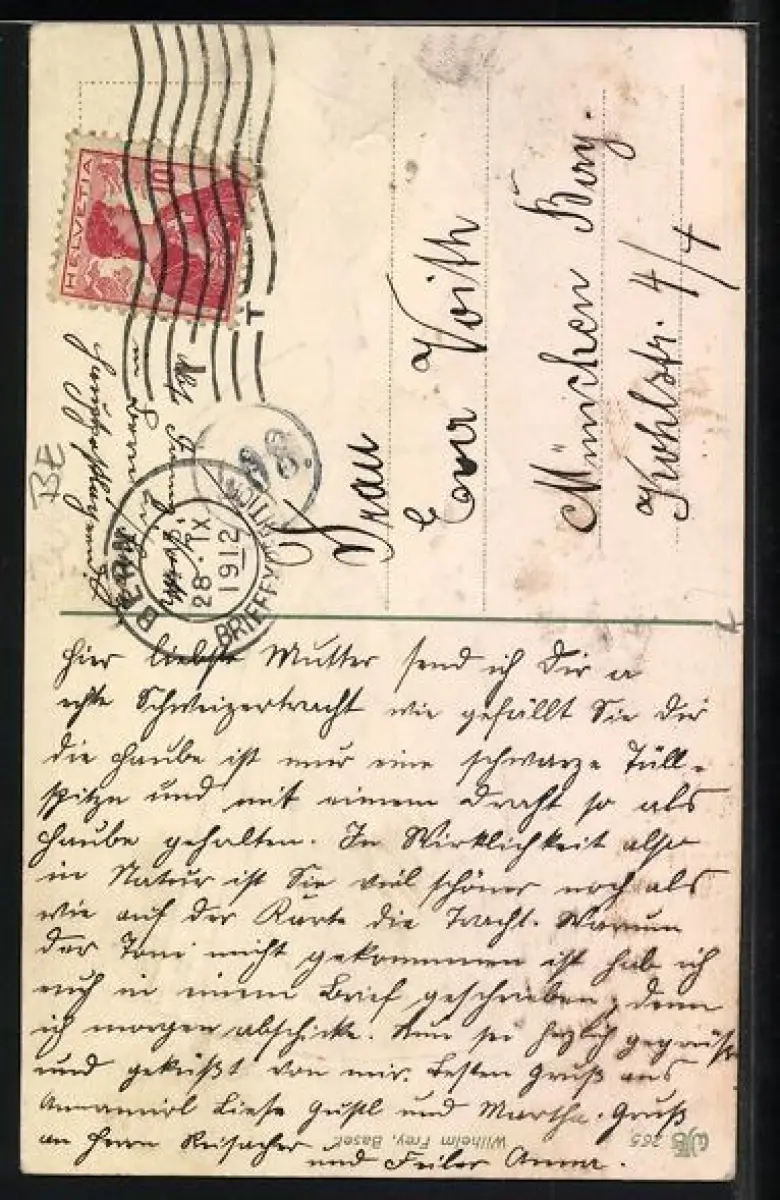 HELVETIA
10
BERN
28. IX
1912
BRIEFEXPEDITION
98
T
BE
Frau
Eva Voith
München Bay.
Kohlstr. 4/4
Hier liebste Mutter send ich Dir a
echte Schweizertracht wie gefällt Sie dir
die Haube ist nur eine schwarze Tüll-
spitze und mit einem Draht so als
Haube gehalten. In Wirklichkeit also
in Natur ist Sie viel schöner noch als
wie auf der Karte die Tracht. Warum
der Toni nicht gekommen ist hab ich
euch in einem Brief geschrieben, denn
ich morgen abschicke. Nun sei herzlich gegrüßt
und geküßt von mir. Besten Gruß ans
Annamirl Liese Gustl und Martha. Gruß
an Herrn Reisacher
und Anna.
Wilhelm Frey, Basel
265